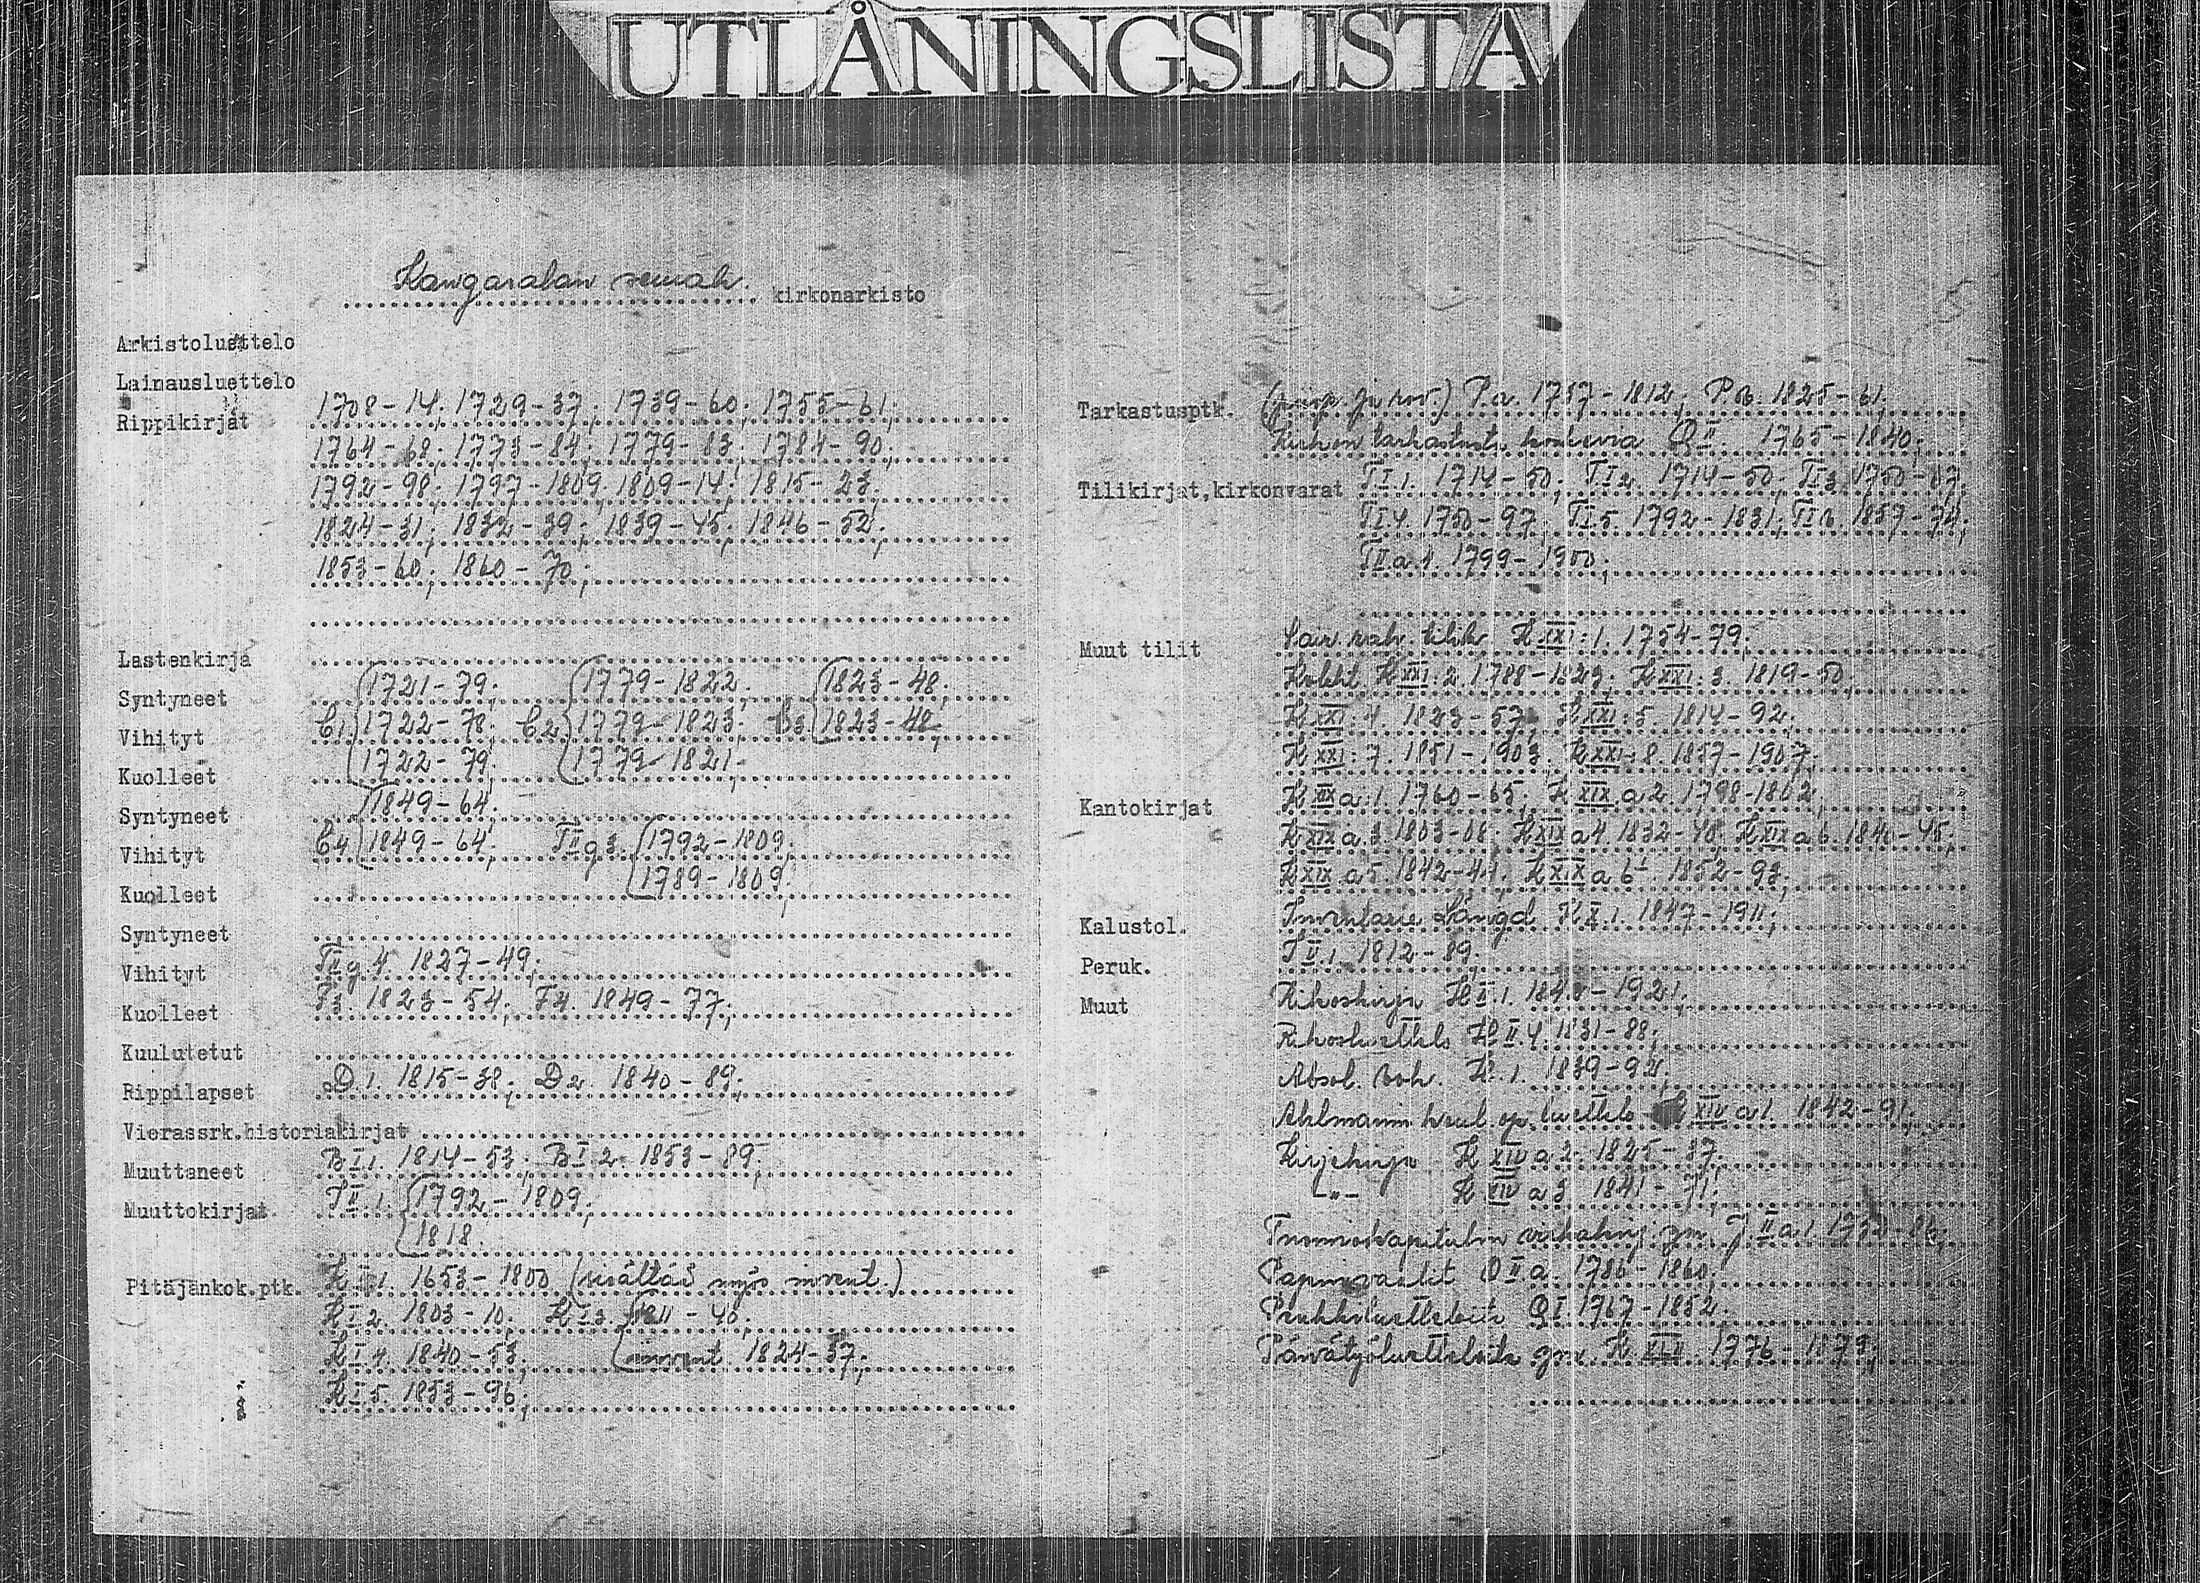 UTLÅNINGSLISTA
Kangasalan seurak. kirkonarkisto
Arkistoluettelo
Lainausluettelo
Rippikirjat 1708-14; 1729-37; 1739-60; 1755-61;
1764-68; 1773-84; 1779-83; 1784-90;
1792-98; 1797-1809; 1809-14; 1815-23;
1824-31; 1832-39; 1839-45; 1846-52;
1853-60; 1860-70;
Lastenkirja
Syntyneet 1721-79; 1779-1822; 1823-48;
Vihityt C1 1722-78; C2 1779-1823; C3 1823-48;
Kuolleet 1722-79; 1779-1821;
Syntyneet 1849-64;
Vihityt C4 1849-64; TII g 3. 1792-1809;
Kuolleet 1789-1809;
Syntyneet
Vihityt TII g 4. 1827-49;
Kuolleet F3. 1823-54; F4. 1849-77;
Kuulutetut
Rippilapset D.1. 1815-38; D2. 1840-89;
Vierassrk.historiakirjat
Muuttaneet B I 1. 1814-53; B I 2. 1853-89;
Muuttokirjat 1. 1792-1809;
1818.
Pitäjänkok.ptk. K I 1. 1653-1800 (sisältää myös invent.)
K I 2. 1803-10; K I 3. 1811-40;
K I 4. 1840-53; invent 1824-37;
K I 5. 1853-96;
Tarkastusptk. (piisp. ja rov.) P.a. 1757-1812; P b. 1825-61;
Kirkon tarkastusta koskevia Q II. 1765-1840;
Tilikirjat,kirkonvarat T I 1. 1714-50; T I 2. 1714-50; T I 3. 1750-07;
T I 4. 1750-97; T I 5. 1792-1831; T I 6. 1857-74;
T II a 1. 1799-1900;
Muut tilit rah. tilik K XXI:1. 1754-79;
Kolekt. K XXI:2. 1788-1823; K XXI:3. 1819-50;
K XXI:4. 1823-57; K XXI:5. 1814-92;
K XXI:7. 1851-1903; K XXI:8. 1857-1907;
Kantokirjat K XIX a:1. 1760-65; K XIX a 2. 1798-1802;
K XIX a 3. 1803-08; K XIX a 4. 1832-40; K XIX a 6. 1840-45;
K XIX a 5. 1842-44; K XIX a 6. 1852-93;
Kalustol. Inventarie Längd K X 1. 1847-1911;
Peruk. II 1. 1812-89;
Muut Rikoskirja 1. -1921;
Rikosluettelo K II 4. 1831-88;
Absol. 1. 1839-92;
Ahlmannin koul. op. luettelo K XIV a 1. 1842-91;
Kirjekirja K XIV a 2. 1825-37;
-"- K XIV a 3. 1841-71;
Tuomiokapitulin virkakirj. ym. J II a 1.
Papinvaalit O II a. 1786-1860;
Penkkiluetteloita Q I. 1767-1852;
Päivätyöluetteloita ym. K XLII. 1776-1879;